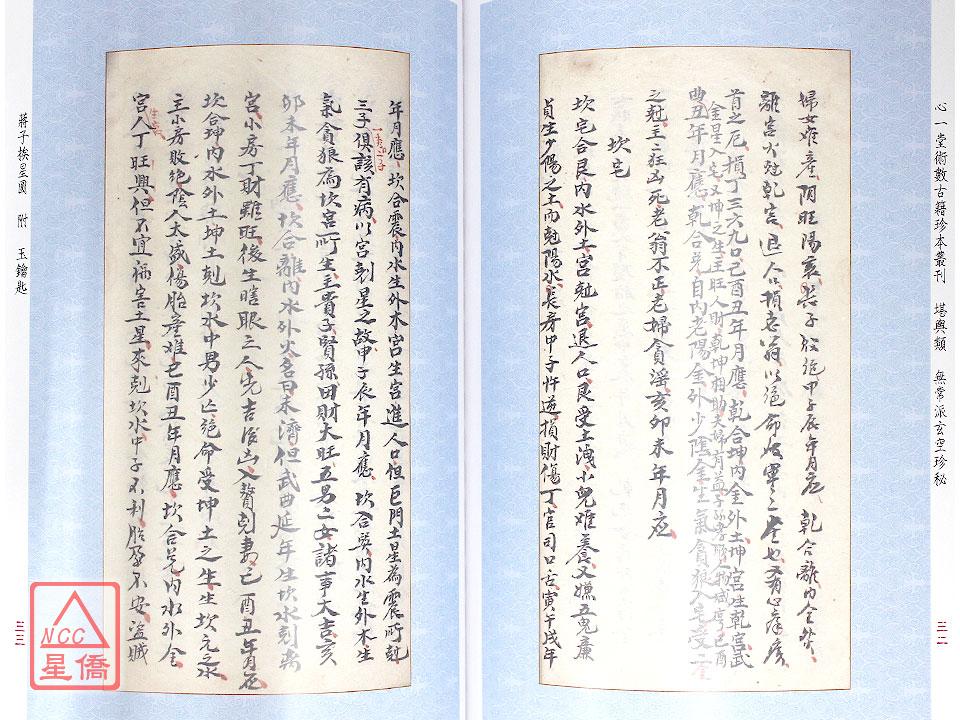 心一堂術數古籍珍本叢刊 堪輿類 無常派玄空珍秘
三二
婦女难產阴旺陽衰长子败绝甲子辰年月应乾合離內金外火
離宮火尅乾宮退人口損老翁以绝命
首之厄損丁三六九口己酉丑年月應乾合坤內金外土坤宮生乾宮武
曲金星入宅又坤之生主旺人财乾坤相助夫婦有益子孙
酉丑年月應乾合兑自內老陽金外少陰金生氣貪狼入宅受二金
之尅主主狂凶死老翁不正老婦貪滛亥卯未年月应
坎宅
坎宅合艮內水外土宮尅宮退人口艮受土洩小兒难養又嫌五鬼廉
貞生少陽之土內尅陽水長房中子忤逆損財傷丁官司口舌寅午戌年
年月應坎合震內水生外木宮生宮進人口但巨門土星為震所尅
三子俱該有病以宮剋星之故申子辰年月應坎合巽內水生外木生
氣貪狼為坎宮所生主貴子賢孫田財大旺五男二女諸事大吉亥
卯未年月應坎合離內水外火名曰未濟但武曲延年生坎水剋离
宮小房丁财雖旺後生瞎眼之人先吉後凶人贅剋妻己酉丑年月应
坎合坤內水外土坤土剋坎水中男少亡绝命受坤土之生生坎元之水
主小房敗絶陰人太盛傷胎產难己酉丑年月應坎合兑內水外金
宮人丁旺興但不宜禍害土星來剋坎水中子不利胎孕不安盜賊
蔣子挨星圖 附 玉鑰匙
三三
NCC
星僑